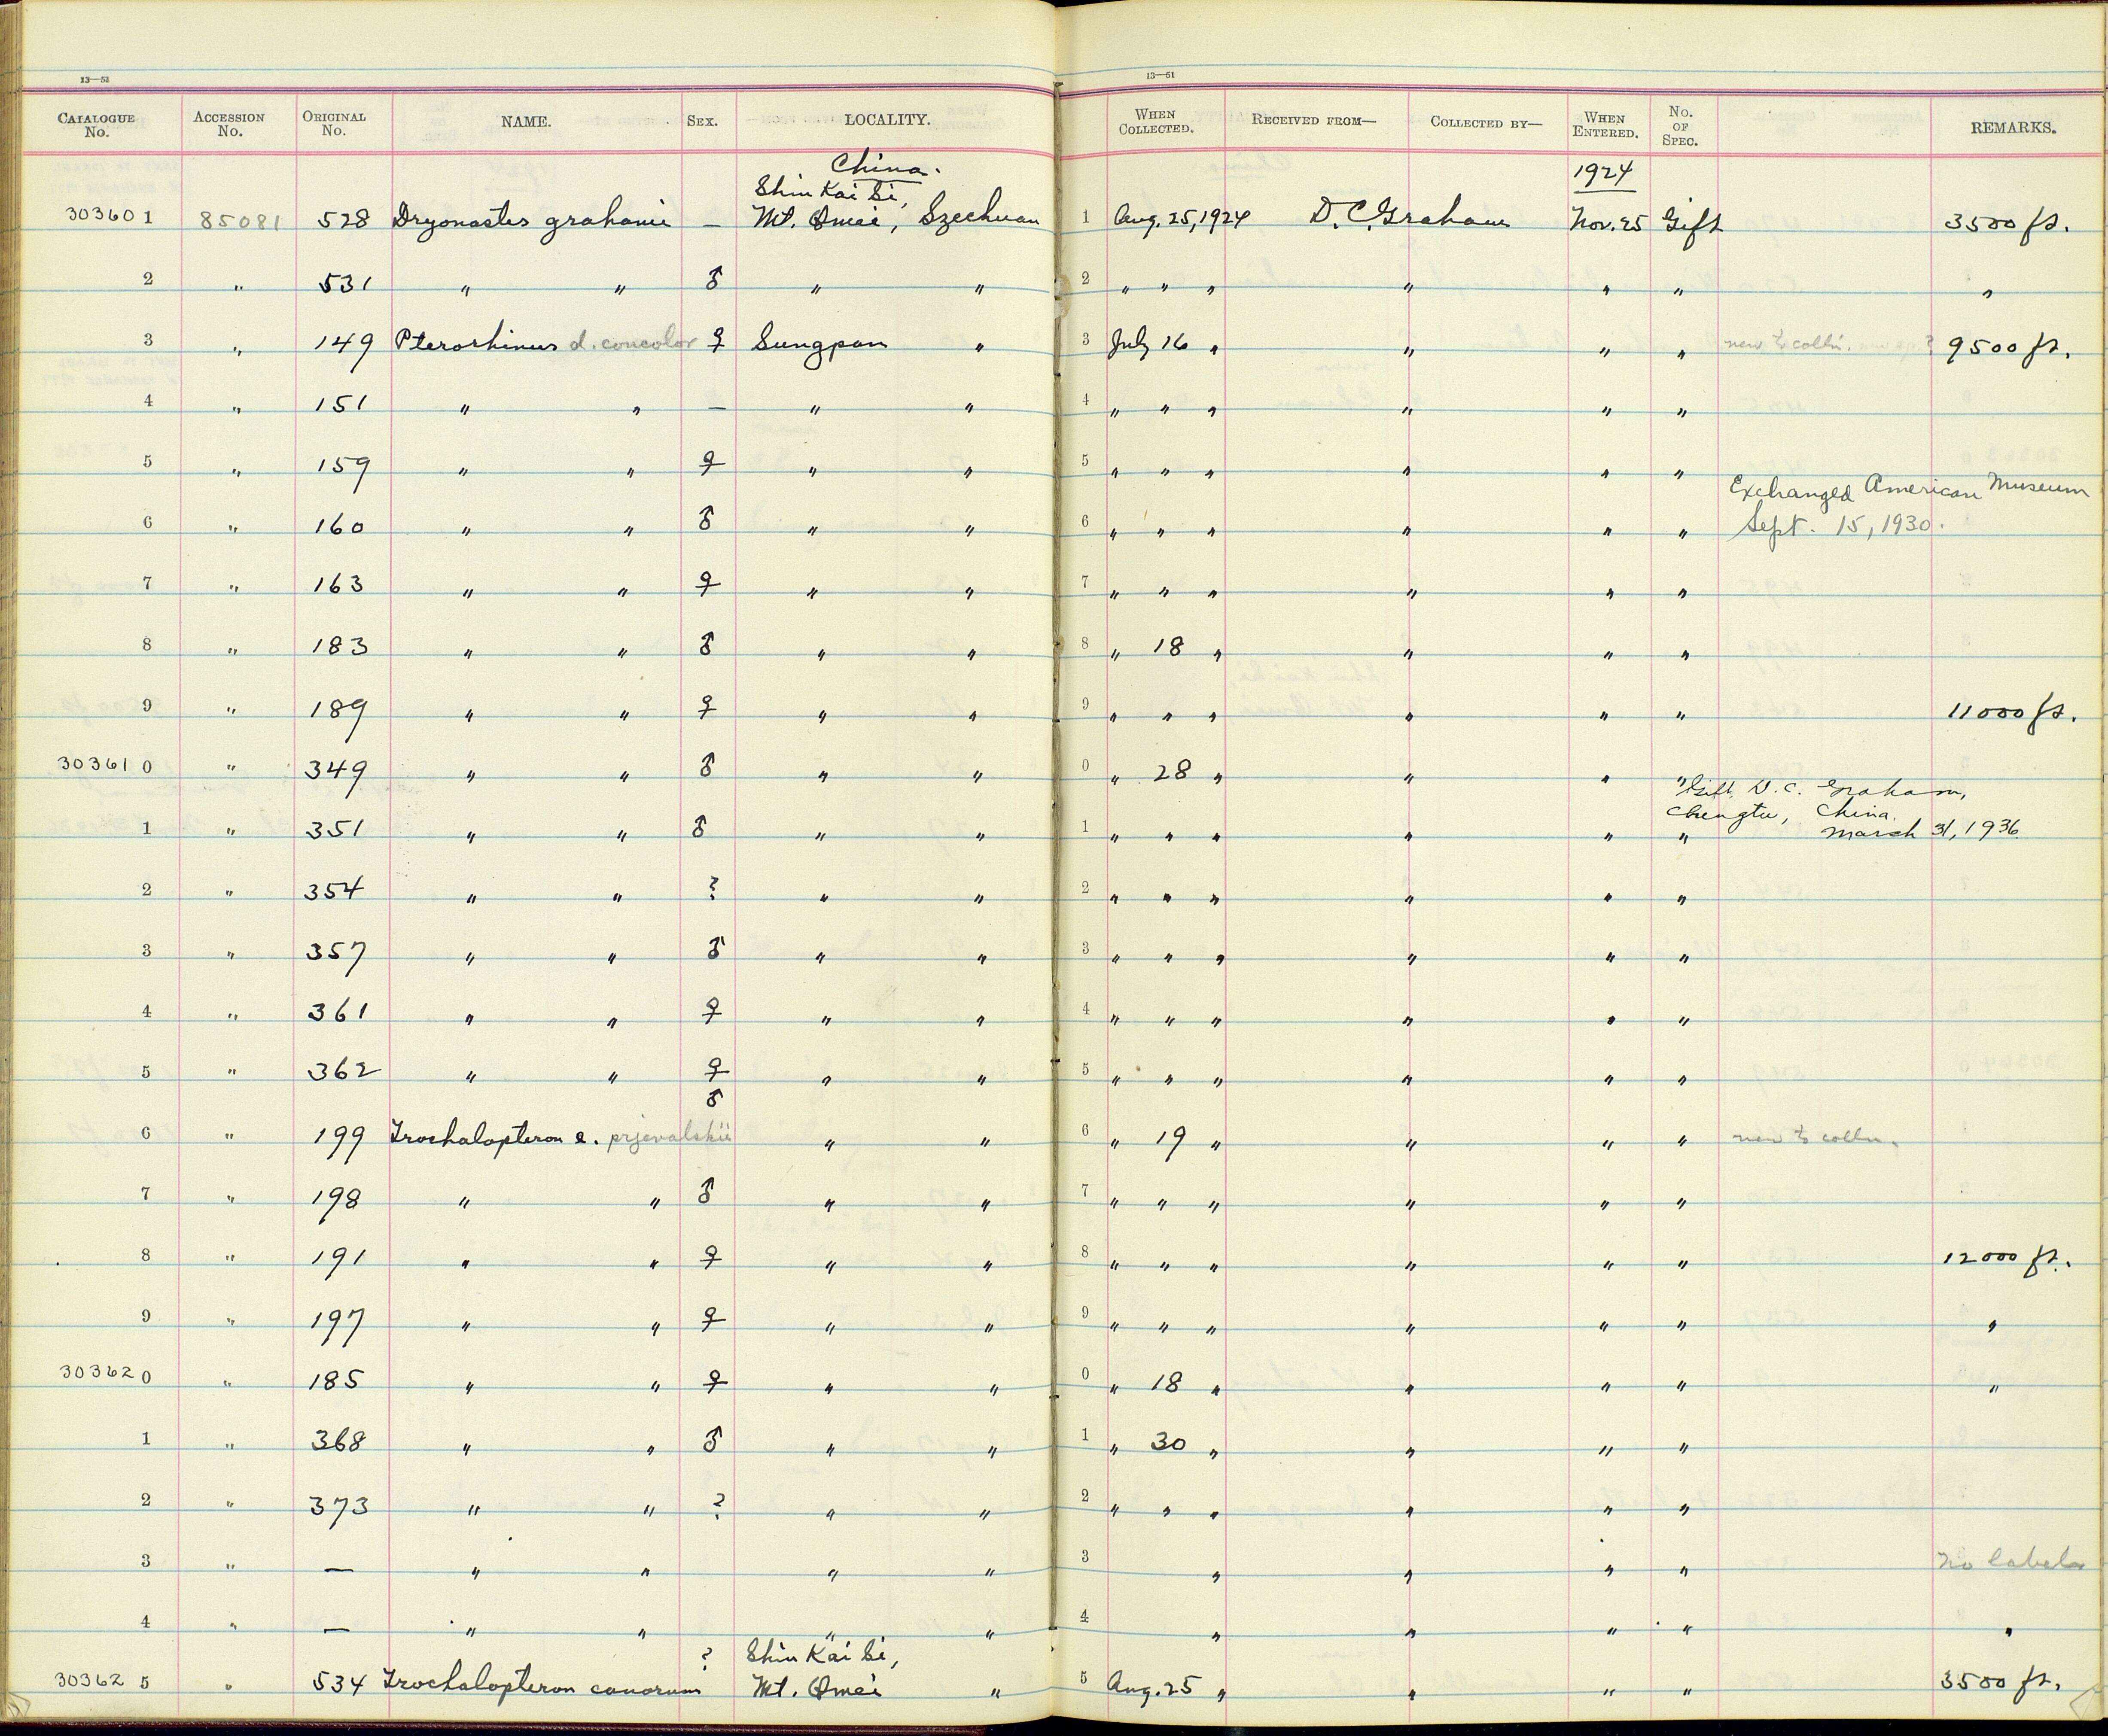 13—52 13—51
CATALOGUE No. ACCESSION No. ORIGINAL No. NAME. SEX. LOCALITY. WHEN COLLECTED. RECEIVED FROM— COLLECTED BY— WHEN ENTERED. No. OF SPEC. REMARKS.
China. 1924
Shin Kai Si,
303601 85081 528 Dryonastes grahami — Mt. Omei, Szechuan 1 Aug. 25, 1924 D. C. Graham Nov. 25 Gift 3500 ft.
2 " 531 " " ♂ " " 2 " " " " " " "
3 " 149 Pterorhinus d. concolor ♀ Sungpan " 3 July 16 " " " " new to colln. ? 9500 ft.
4 " 151 " " — " " 4 " " " " " "
5 " 159 " " ♀ " " 5 " " " " " "
Exchanged American Museum
6 " 160 " " ♂ " " 6 " " " " " " Sept. 15, 1930.
7 " 163 " " ♀ " " 7 " " " " " "
8 " 183 " " ♂ " " 8 " 18 " " " "
9 " 189 " " ♀ " " 9 " " " " " " 11000 ft.
303610 " 349 " " ♂ " " 0 " 28 " " " "
Gift D. C. Graham,
Chengtu, China.
1 " 351 " " ♂ " " 1 " " " " " " March 31, 1936
2 " 354 " " ? " " 2 " " " " " "
3 " 357 " " ♂ " " 3 " " " " " "
4 " 361 " " ♀ " " 4 " " " " " "
5 " 362 " " ♀ " " 5 " " " " " "
6 " 199 Trochalopteron e. prjevalskii ♂ " " 6 " 19 " " " " new to colln.
7 " 198 " " ♂ " " 7 " " " " " "
8 " 191 " " ♀ " " 8 " " " " " " 12000 ft.
9 " 197 " " ♀ " " 9 " " " " " " "
303620 " 185 " " ♀ " " 0 " 18 " " " " "
1 " 368 " " ♂ " " 1 " 30 " " " "
2 " 373 " " ? " " 2 " " " " " "
3 " — " " " " 3 " " " " no labels
4 " — " " " " 4 " " " " "
Shin Kai Si,
303625 " 534 Trochalopteron canorum ? Mt. Omei " 5 Aug. 25 " " " " 3500 ft.